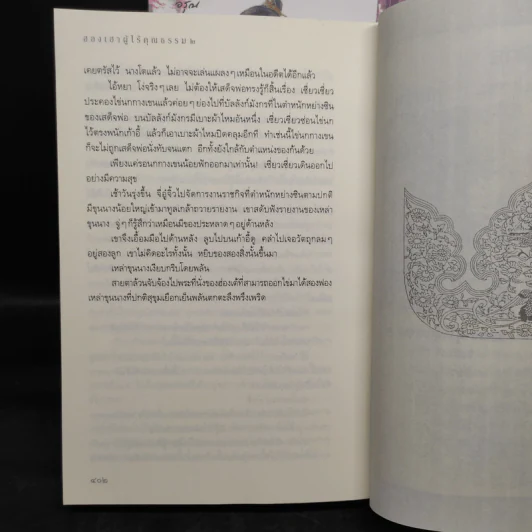 อรุณ
สองเฒ่าผู้ไร้คุณธรรม ๒
เคยตรัสไว้ นางโตแล้ว ไม่อาจจะเล่นแผลงๆ เหมือนในอดีตได้อีกแล้ว
ไอ้หยา โง่จริงๆ เลย ไม่ต้องให้เสด็จพ่อทรงรู้ก็สิ้นเรื่อง เชี่ยวเชี่ยว
ประคองไข่นกกางเขนแล้วค่อยๆ ย่องไปที่บัลลังก์มังกรที่ในตำหนักหย่างซิน
ของเสด็จพ่อ บนบัลลังก์มังกรมีเบาะผ้าไหมอันหนึ่ง เชี่ยวเชี่ยวซ่อนไข่นก
ไว้ตรงพนักเก้าอี้ แล้วก็เอาเบาะผ้าไหมปิดคลุมอีกที ทำเช่นนี้ไข่นกกางเขน
ก็จะไม่ถูกเสด็จพ่อนั่งทับจนแตก อีกทั้งยังใกล้กับตำแหน่งของก้นด้วย
เพียงแค่รอนกกางเขนน้อยฟักออกมาเท่านั้น! เชี่ยวเชี่ยวเดินออกไป
อย่างมีความสุข
เช้าวันรุ่งขึ้น จีอู๋จิ้วไปจัดการงานราชกิจที่ตำหนักหย่างซินตามปกติ
มีขุนนางน้อยใหญ่เข้ามาทูลเกล้าถวายรายงาน เขาสดับฟังรายงานของเหล่า
ขุนนาง จู่ๆ ก็รู้สึกว่าเหมือนมีของประหลาดๆ อยู่ด้านหลัง
เขาจึงเอื้อมมือไปด้านหลัง ลูบไปบนเก้าอี้ดู คลำไปเจอวัตถุกลมๆ
อยู่สองลูก เขาไม่คิดอะไรทั้งนั้น หยิบของสองสิ่งนั้นขึ้นมา
เหล่าขุนนางเงียบกริบโดยพลัน
สายตาล้วนจับจ้องไปพระที่นั่งของฮ่องเต้ที่สามารถออกไข่มาได้สองฟอง
เหล่าขุนนางที่ปกติสุขุมเยือกเย็นพลันตกตะลึงพรึงเพริด
๔๐๒